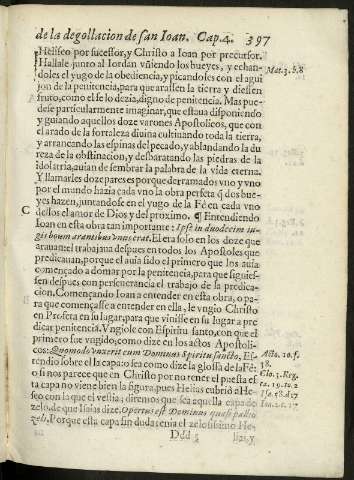 de la degollacion de san Ioan. Cap. 4. 397
Heliseo por sucessor, y Christo a Ioan por precursor.
Hallale junto al Iordan vñiendo los bueyes, y echan-
doles el yugo de la obediencia, y picandolos con el agui
jon de la penitencia, para que arassen la tierra y diessen
fruto, como el se lo dezia, digno de penitencia. Mas pue-
dese particularmente imaginar, que estaua disponiendo
y guiando aquellos doze varones Apostolicos, que con
el arado de la fortaleza diuina cultiuando toda la tierra,
y arrancando las espinas del pecado, y ablandando la du
reza de la obstinacion, y desbaratando las piedras de la
idolatria, auian de sembrar la palabra de la vida eterna.
Y llamarles doze pares es porque derramados vno y vno
por el mundo hazia cada vno la obra perfeta q̃ dos bue-
yes hazen, juntandose en el yugo de la Fè en cada vno
dellos el amor de Dios y del proximo. ¶ Entendiendo
Ioan en esta obra tan importante: Ipse in duodecim iu-
gis boum arantibus vnus erat. El era solo en los doze que
araua en el trabajaua despues en todos los Apostoles que
predicauan, porque el auia sido el primero que los auia
començado a domar por la penitencia, para que siguies-
sen despues con perseuerancia el trabajo de la predica-
cion. Començando Ioan a entender en esta obra, o pa-
ra que començasse a entender en ella, le vngio Christo
en Profeta en su lugar, para que viniesse en su lugar a pre
dicar penitencia. Vngiole con Espiritu santo, con que el
primero fue vngido, como dize en los actos Apostoli-
cos: Quomodo vnxerit eum Dominus Spiritu sancto. Es-
tendio sobre el la capa: o sea como dize la glossa de la Fè:
o si nos parece que en Christo por no tener el puesta es
ta capa no viene bien la figura, pues Helias cubriò a He-
seo con la que el vestia; diremos que sea aquella capa de
zelo, de que Isaias dize, Opertus est Dominus quasi pallio
zeli. Porque esta capa sin duda tenia el zelosissimo He-
Ddd 5
Mat. 3. b. 8
C
Acto. 10. f.
38.
Glo. 3. Reg.
c. 19. 10. 2
Isa. 58. d. 17